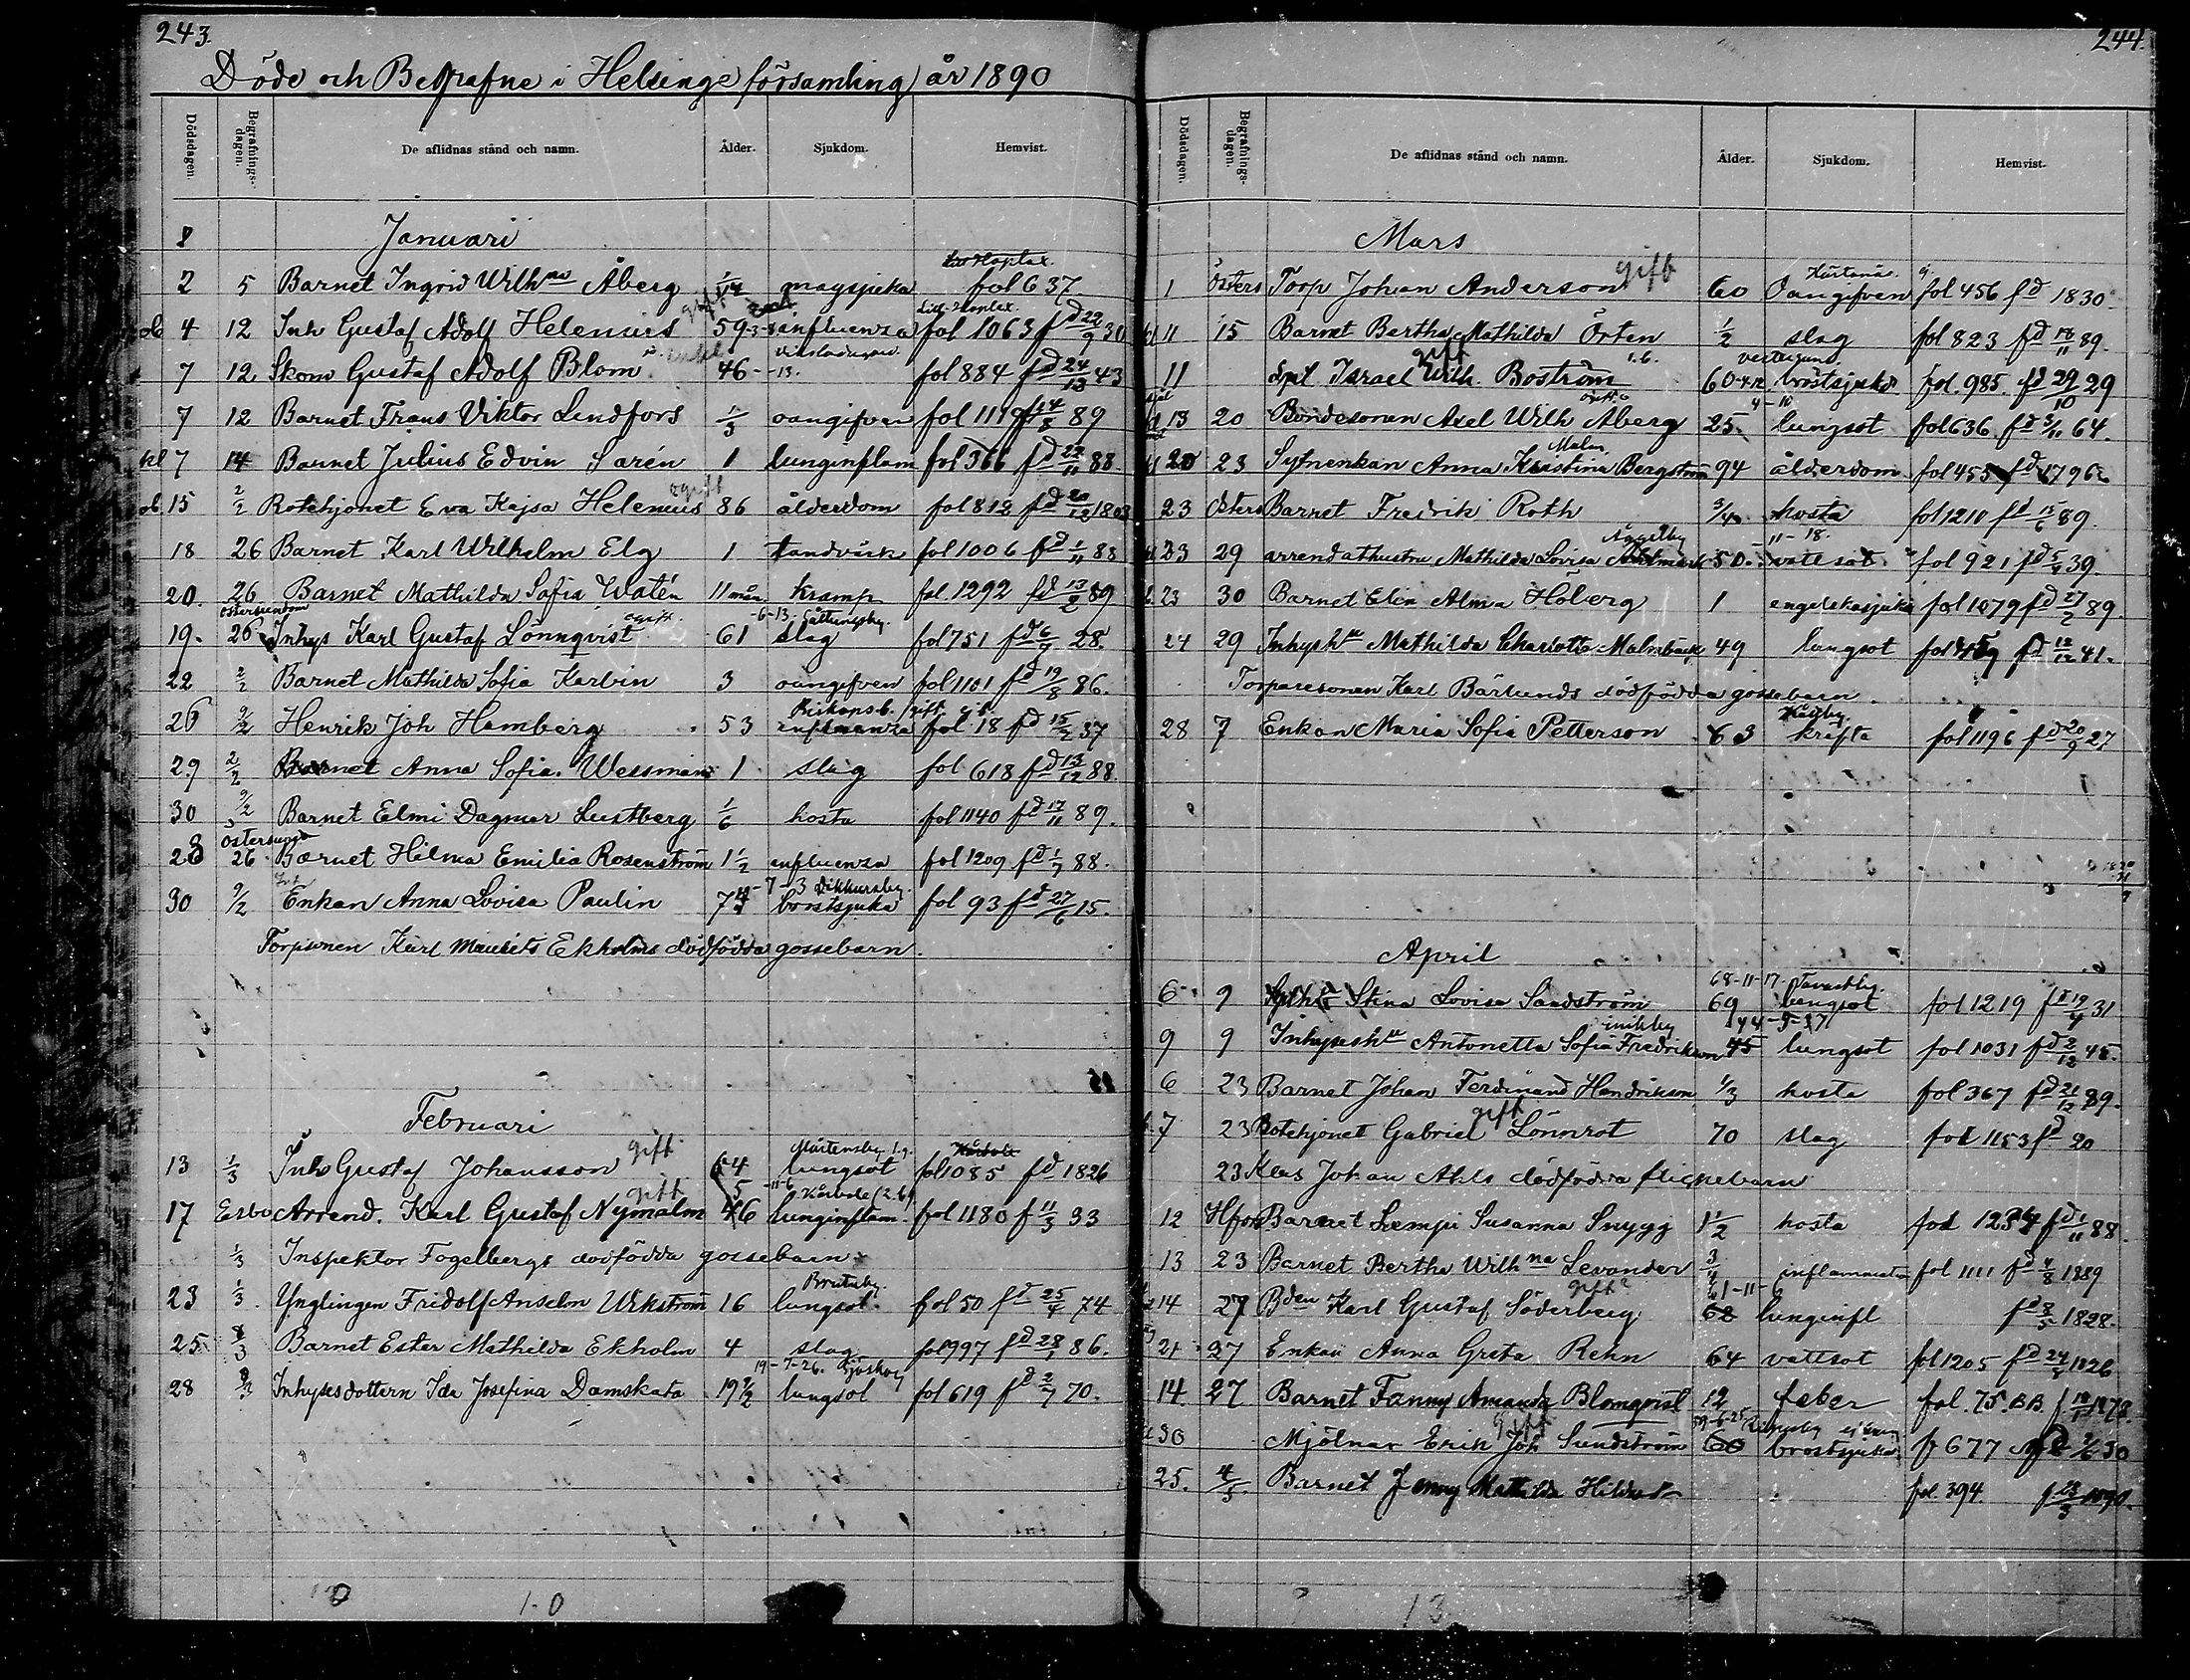 243.
Döde och Begrafne i Helsinge församling år 1890
Dödsdagen. Begrafnings-dagen. De aflidnas stånd och namn. Ålder. Sjukdom. Hemvist.
8 Januari
2 5 Barnet Ingrid Wilhna Åberg magsjuka fol 637
4 12 Inh Gustaf Adolf Helenius 59 influenza fol 1063 fd 22/9 30
7 12 Skom Gustaf Adolf Blom 46 fol 884 fd 24/12 43
7 12 Barnet Frans Viktor Lindfors 1/3 oangifven fol 1119 fd 14/8 89
kl 7 14 Barnet Julius Edvin Sarén 1 lunginflam fol 366 fd 22/11 88
15 2/2 Rotehjonet Eva Kajsa Helenius ogift 86 ålderdom fol 812 fd 20/12 1803
18 26 Barnet Karl Wilhelm Elg 1 tandvärk fol 1006 fd 1/11 88
20. 26 Barnet Mathilda Sofia Watén 11 mån kramp fol. 1292 fd 13/2 89
Östersundom
19. 26 Inhys Karl Gustaf Lönnqvist 61 -6-13. slag fol 751 fd 6/7 28.
22 2/2 Barnet Mathilda Sofia Karvin 3 oangifven fol 1101 fd 19/8 86.
26 9/2 Henrik Joh Hamberg 53 influenza fol 18 fd 15/2 37
29 2/2 Barnet Anna Sofia Wessman 1 slag fol 618 fd 13/12 88.
30 9/2 Barnet Elmi Dagmar Lustberg 1/6 hosta fol 1140 fd 17/11 89.
28 26 Barnet Hilma Emilia Rosenström 1 1/2 influenza fol 1209 fd 1/7 88.
-7-3 Dikkursby.
30 9/2 Enkan Anna Lovisa Paulin 74 bröstsjuka fol 93 fd 27/6 15.
Torpsonen Karl Maurits Ekholms dödfödda gossebarn.
Februari
13 1/3 Inh Gustaf Johansson gift 64 lungsot fol 1085 fd 1826
17 Esbo Arrend. Karl Gustaf Nymalm gift 56 lunginflam. fol 1180 f 11/3 33
1/3 Inspektor Fogelbergs dödfödda gossebarn
23 1/3 Ynglingen Fridolf Anselm Wikström 16 lungsot. fol 50 fd 25/4 74
25 8/3 Barnet Ester Mathilda Ekholm 4 slag fol 997 fd 28/1 86.
19-7-26.
28 8/3 Inhysesdottern Ida Josefina Damskata 19 1/2 lungsot fol 619 fd 2/7 70.
244.
Dödsdagen. Begrafnings-dagen. De aflidnas stånd och namn. Ålder. Sjukdom. Hemvist.
Mars
1 Östers Torp Johan Anderson gift 60 Oangifven fol 456 fd 1830
11 15 Barnet Bertha Mathilda Örten 1/2 slag fol 823 fd 18/11 89.
11 Spl Israel Wilh. Boström gift 60-4-12 bröstsjukd fol. 985. fd 29/10 29
13 20 Bondesonen Axel Wilh Åberg 25. lungsot fol 636 fd 3/11 64.
20 23 Sytnenkan Anna Kristina Bergström Malm 94 ålderdom fol 455 fd 1796
23 Östers Barnet Fredrik Roth 3/4 hosta fol 1210 fd 15/6 89.
-11-18.
23 29 arrendathustru Mathilda Lovisa 50. vattsot fol 921 fd 5/4 39.
23 30 Barnet Elin Alma Höberg 1 engelskasjuka fol 1079 fd 27/2 89.
24 29 Inhyshu Mathilda Charlotta Malmbäck 49 lungsot fd 12/12 41.
Torparesonen Karl Bärlunds dödfödda gossebarn.
28 7 Enkan Maria Sofia Petterson 63 kräfta fol 1196 fd 20/9 27
April
68-11-17.
6 9 Stina Lovisa Sandström 69 lungsot fol 1219 fd 19/4 31
9 9 Inhyseshu Antonetta Sofia Fredrikson 45 lungsot fol 1031 fd 2/12 45.
6 23 Barnet Johan Ferdinand Hendrikson 1/3 hosta fol 367 fd 21/12 89.
7 23 Rotehjonet Gabriel Lönnrot gift 70 slag fol 1153 fd 20
23 Klas Johan Ahls dödfödda flickebarn
12 Hfors Barnet Lempi Susanna Snygg 1 1/2 hosta fol 1234 fd 1/11 88.
13 23 Barnet Bertha Wilhna Levander inflammation fol 1111 fd 4/8 1889
14 27 Bden Karl Gustaf Söderberg gift? 62 lunginfl fd 8/5 1828.
21 27 Enkan Anna Greta Rehn 64 vattsot fol 1205 1826
14. 27 Barnet Fanny Amanda Blomqvist 12 feber fol. 75. BB.
30 Mjölnar Erik Joh Sundström gift 60 bröstsjuka f 677 30
25. 4/5. Barnet Jenny Mathilda fol. 394. f 23/3 1890.